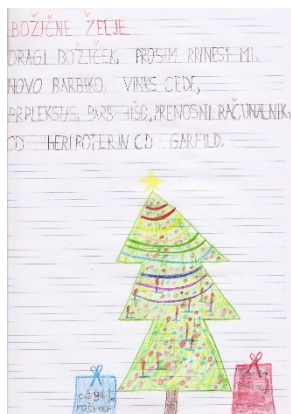 BOŽIČNE ŽELJE
DRAGI BOŽIČEK, PROSIM PRINESI MI.
NOVO BARBIKO, VINKS CEDE,
PERPLEKSUS, BARB HIŠO, PRENOSNI RAČUNALNIK,
CD HERI POTER IN CD GARFILD.